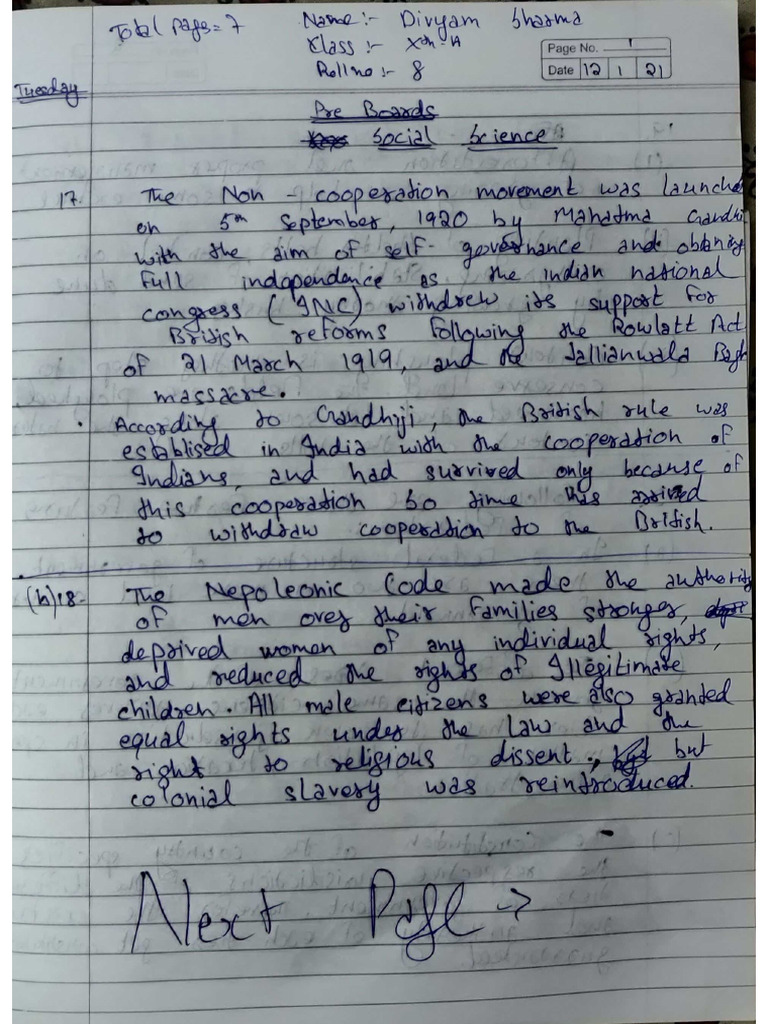 Total page = 7
Name :- Divyam Sharma
Class :- Xth - A
Roll no :- 8
Page No. 1
Date 12 1 21
Tuesday
Pre Boards
Social Science
17. The Non - cooperation movement was launched
on 5th September, 1920 by Mahatma Gandhi
with the aim of self- governance and obtaning
Full independence as the Indian national
congress (INC) withdrew its support for
British reforms following the Rowlatt Act
of 21 March 1919, and the Jallianwala Bagh
massacre.
• According to Gandhiji, the British rule was
establised in India with the cooperation of
Indians, and had survived only because of
this cooperation so time has arrived
to withdraw cooperation to the British.
(b) 18- The Nepoleonic Code made the authority
of men over their families stronger,
deprived women of any individual rights,
and reduced the rights of Illegitimate
children. All male citizens were also granted
equal rights under the law and the
right to religious dissent, but
colonial slavery was reintroduced.
Next Page →